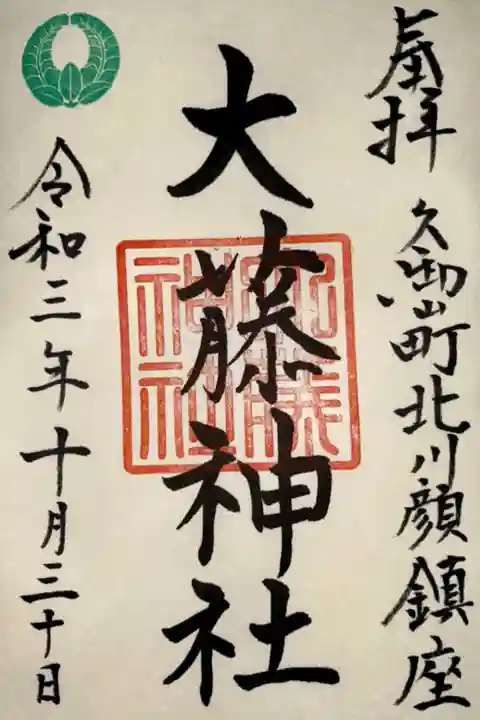 奉拝
久御山町北川顔鎮座
大藤神社
大藤
神社
令和三年十月三十日